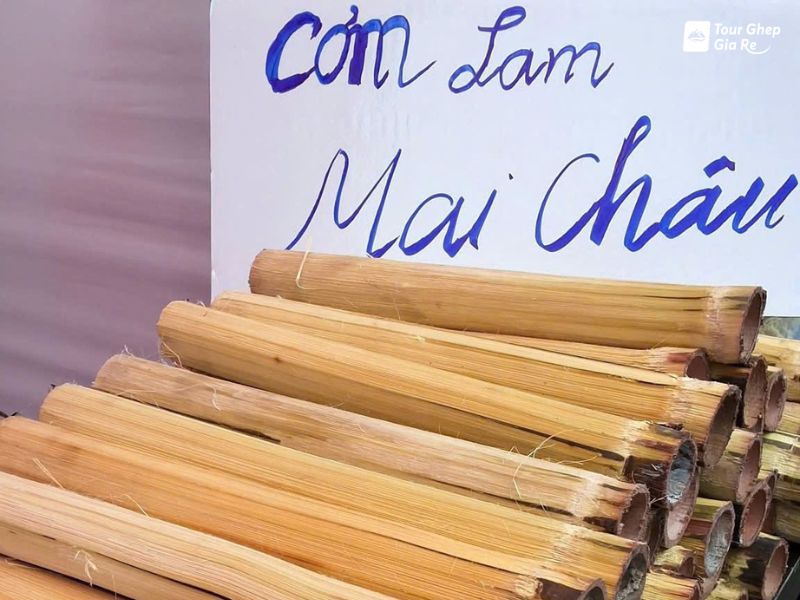 Cơm Lam
Mai Châu
Tour Ghep
Gia Re